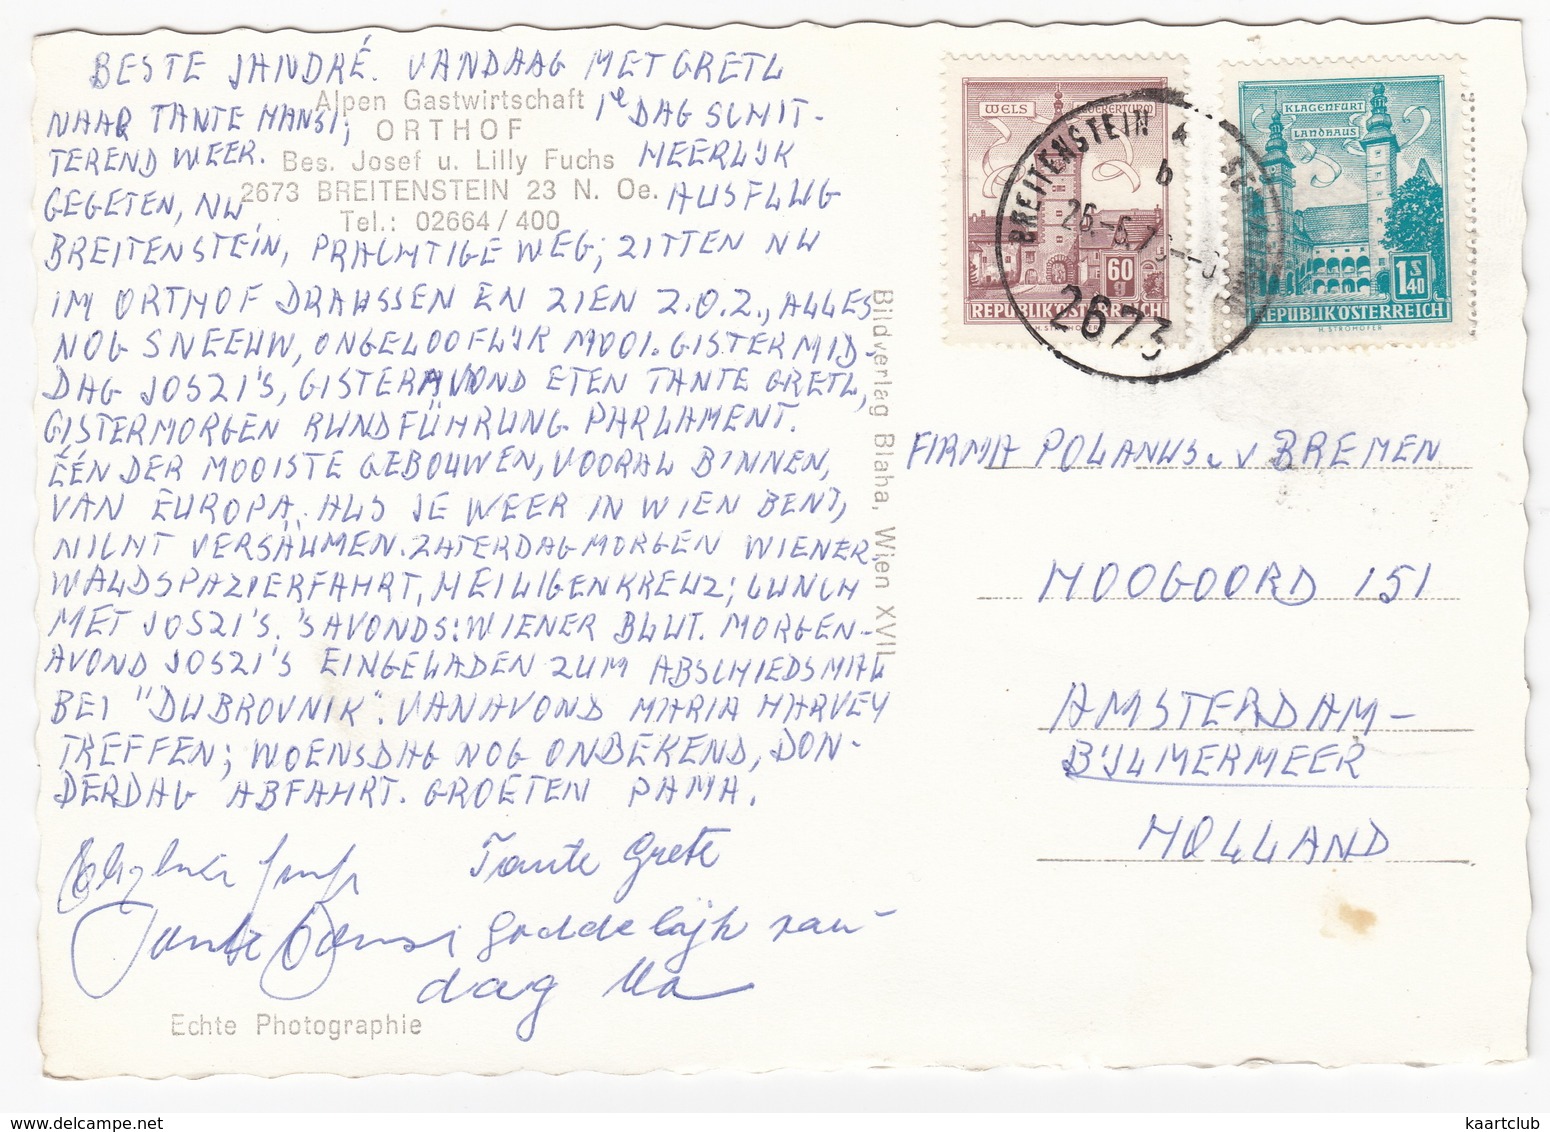 BESTE JANDRÉ. VANDAAG MET GRETL
NAAR TANTE HANSI; 1e DAG SCHIT-
TEREND WEER. HEERLIJK
GEGETEN, NU AUSFLUG
BREITENSTEIN, PRACHTIGE WEG; ZITTEN NU
IM ORTHOF DRAUSSEN EN ZIEN Z.O.Z., ALLES
NOG SNEEUW, ONGELOOFLIJK MOOI. GISTERMID-
DAG JOSZI'S, GISTERAVOND ETEN TANTE GRETL,
GISTERMORGEN RUNDFÜHRUNG PARLAMENT.
ÉÉN DER MOOISTE GEBOUWEN, VOORAL BINNEN,
VAN EUROPA. ALS JE WEER IN WIEN BENT,
NICHT VERSÄUMEN. ZATERDAGMORGEN WIENER-
WALDSPAZIERFAHRT, HEILIGENKREUZ; LUNCH
MET JOSZI'S. 'S AVONDS: WIENER BLUT. MORGEN-
AVOND JOSZI'S EINGELADEN ZUM ABSCHIEDSMAL
BEI "DUBROVNIK". VANAVOND MARIA HARVEY
TREFFEN; WOENSDAG NOG ONBEKEND, DON-
DERDAG ABFAHRT. GROETEN PAMA.
Tante Grete
Tante Hansi goddelijk van-
dag Ma
Alpen Gastwirtschaft
ORTHOF
Bes. Josef u. Lilly Fuchs
2673 BREITENSTEIN 23 N. Oe.
Tel.: 02664/400
Echte Photographie
Bildverlag Blaha, Wien XVII
WELS
REPUBLIK ÖSTERREICH
60
g
H. STROHOFER
KLAGENFURT
LANDHAUS
1S40
REPUBLIK ÖSTERREICH
H. STROHOFER
BREITENSTEIN
b
2673
FIRMA POLANUS v BREMEN
HOOGOORD 151
AMSTERDAM-
BIJLMERMEER
HOLLAND
kaartclub